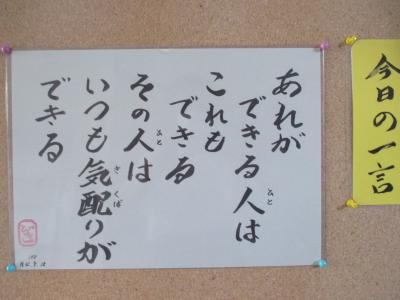 今日の一言
あれが
できる人は
これも
できる
その人は
いつも気配りが
できる